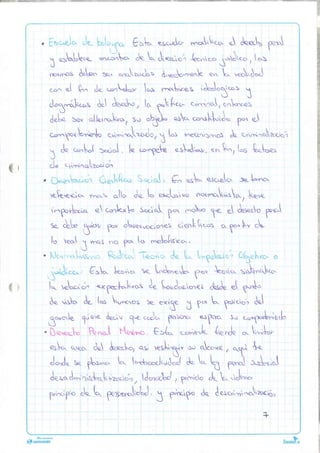 • Escuela de bologna Esta escuela modifica el derecho penal
y establece encontra de la dirección técnico jurídico, las
normas deben ser analizadas directamente en la realidad
con el fin de controlar los matices ideologicos y
dogmáticos del derecho, la política criminal, entonces
debe ser alternativa, su objeto esta constituido por el
comportamiento criminalizado, y los mecanismos de criminalización
y de control social. le compete estudiar, en fin, los factores
de criminalización
• Orientación Científica Social: En esta escuela se toma
referencia mas alla de lo exclusivo normativista, tiene
importancia el contexto social por motivo que el derecho penal
se debe guiar por observaciones científicas a partir de
lo real y mas no por la metafísica.
• Normativismo Radical Teoría de la Imputación Objetiva o
jurídica: Esta teoría se fundamenta por teoría sistemática
la relación expectativas de los desde el punto
de vista de los humanos se exige y por la posición del
garante quiere decir que cada persona espera su comportamiento
• Derecho Penal Mínimo. Esta corriente tiende a limitar
esta area del derecho, asi restringir su alcance, aqui
donde se plasma la de la ley penal sustancial
desadministrativización, , principio de la
principio de la personalidad y principio de descriminalización
7